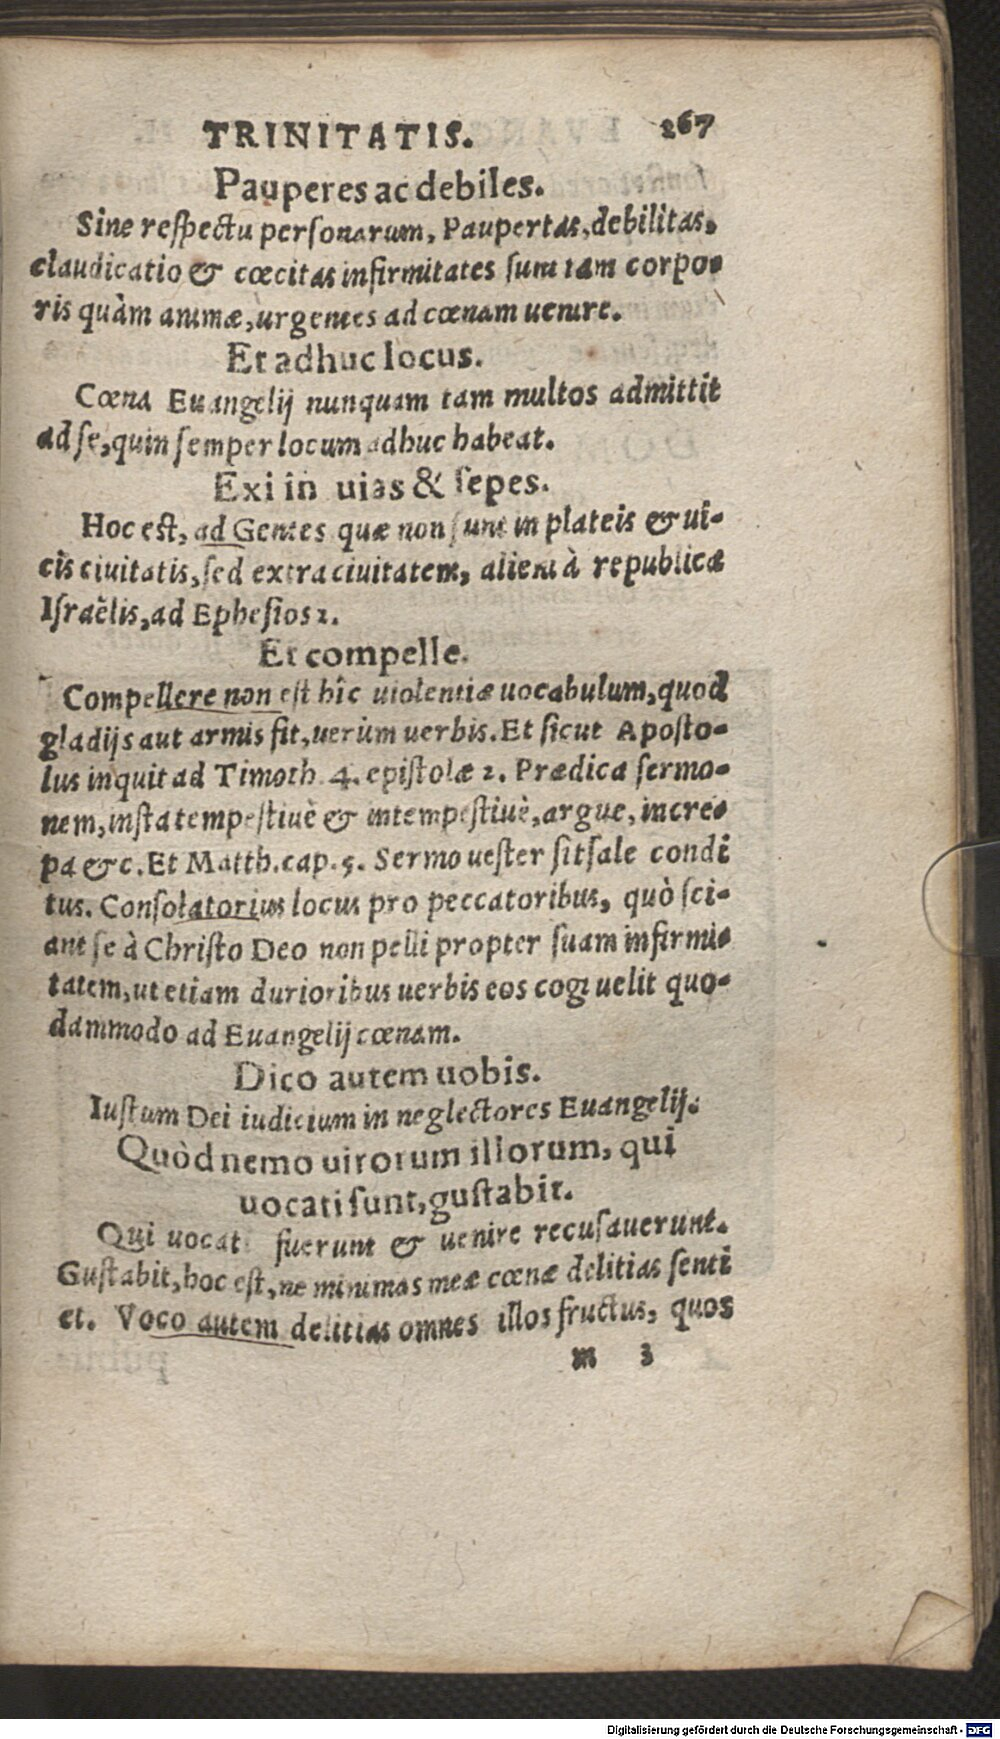 TRINITATIS. 267
Pauperes ac debiles.
Sine respectu personarum, Paupertas, debilitas,
claudicatio & cœcitas infirmitates sunt tam corpo-
ris quàm animæ, urgentes ad cœnam uenire.
Et adhuc locus.
Cœna Euangelij nunquam tam multos admittit
ad se, quin semper locum adhuc habeat.
Exi in uias & sepes.
Hoc est, ad Gentes quæ non sunt in plateis & ui-
cis ciuitatis, sed extra ciuitatem, alieni à republica
Israêlis, ad Ephesios 2.
Et compelle.
Compellere non est hîc uiolentiæ uocabulum, quod
gladijs aut armis fit, uerùm uerbis. Et sicut Aposto-
lus inquit ad Timoth. 4. epistolæ 2. Prædica sermo-
nem, insta tempestiuè & intempestiuè, argue, incre-
pa &c. Et Matth. cap. 5. Sermo uester sit sale condi
tus. Consolatorius locus pro peccatoribus, quò sci-
ant se à Christo Deo non pelli propter suam infirmi-
tatem, ut etiam durioribus uerbis eos cogi uelit quo-
dammodo ad Euangelij cœnam.
Dico autem uobis.
Iustum Dei iudicium in neglectores Euangelij.
Quòd nemo uirorum illorum, qui
uocati sunt, gustabit.
Qui uocati fuerunt & uenire recusauerunt.
Gustabit, hoc est, ne minimas meæ cœnæ delitias senti
et. Voco autem delitias omnes illos fructus, quos
m 3
Digitalisierung gefördert durch die Deutsche Forschungsgemeinschaft - DFG